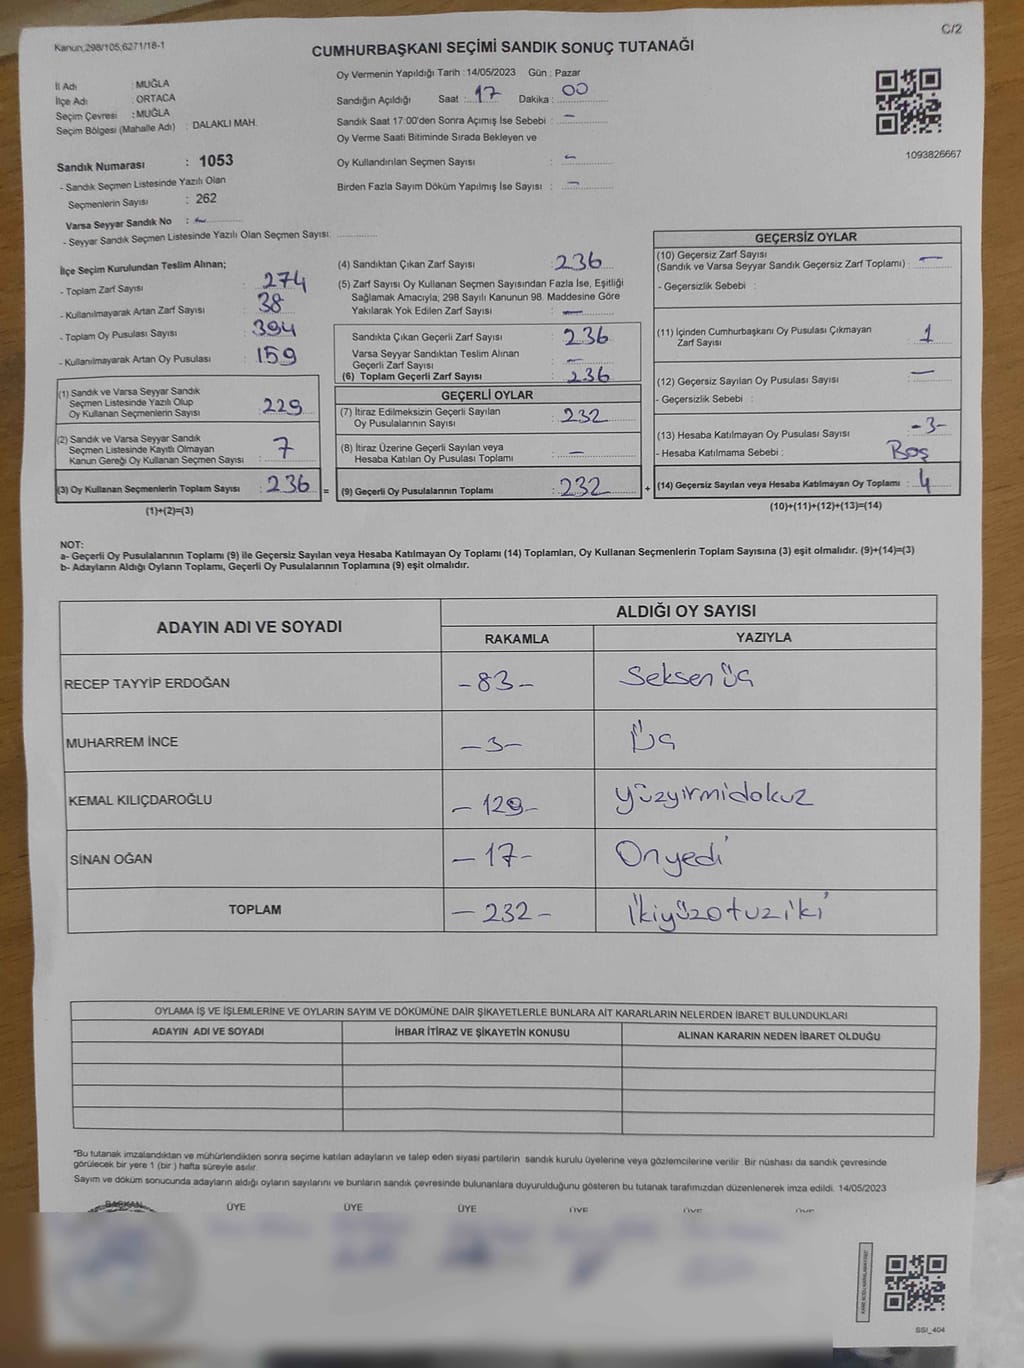 Kanun,298/105,6271/18-1
C/2
CUMHURBAŞKANI SEÇİMİ SANDIK SONUÇ TUTANAĞI
İl Adı : MUĞLA
İlçe Adı : ORTACA
Seçim Çevresi : MUĞLA
Seçim Bölgesi (Mahalle Adı) : DALAKLI MAH.
Sandık Numarası : 1053
- Sandık Seçmen Listesinde Yazılı Olan
Seçmenlerin Sayısı : 262
Varsa Seyyar Sandık No : -
- Seyyar Sandık Seçmen Listesinde Yazılı Olan Seçmen Sayısı:
Oy Vermenin Yapıldığı Tarih :14/05/2023 Gün : Pazar
Sandığın Açıldığı Saat : 17 Dakika : 00
Sandık Saat 17:00'den Sonra Açımış İse Sebebi : -
Oy Verme Saati Bitiminde Sırada Bekleyen ve
Oy Kullandırılan Seçmen Sayısı : -
Birden Fazla Sayım Döküm Yapılmış İse Sayısı : -
1093826667
İlçe Seçim Kurulundan Teslim Alınan;
- Toplam Zarf Sayısı : 274
- Kullanılmayarak Artan Zarf Sayısı : 38
- Toplam Oy Pusulası Sayısı : 394
- Kullanılmayarak Artan Oy Pusulası : 159
(1) Sandık ve Varsa Seyyar Sandık
Seçmen Listesinde Yazılı Olup
Oy Kullanan Seçmenlerin Sayısı : 229
(2) Sandık ve Varsa Seyyar Sandık
Seçmen Listesinde Kayıtlı Olmayan
Kanun Gereği Oy Kullanan Seçmen Sayısı : 7
(3) Oy Kullanan Seçmenlerin Toplam Sayısı : 236 =
(1)+(2)=(3)
(4) Sandıktan Çıkan Zarf Sayısı : 236
(5) Zarf Sayısı Oy Kullanan Seçmen Sayısından Fazla İse, Eşitliği
Sağlamak Amacıyla, 298 Sayılı Kanunun 98. Maddesine Göre
Yakılarak Yok Edilen Zarf Sayısı : -
Sandıkta Çıkan Geçerli Zarf Sayısı : 236
Varsa Seyyar Sandıktan Teslim Alınan
Geçerli Zarf Sayısı : -
(6) Toplam Geçerli Zarf Sayısı : 236
GEÇERLİ OYLAR
(7) İtiraz Edilmeksizin Geçerli Sayılan
Oy Pusulalarının Sayısı : 232
(8) İtiraz Üzerine Geçerli Sayılan veya
Hesaba Katılan Oy Pusulası Toplamı : -
(9) Geçerli Oy Pusulalarının Toplamı : 232 +
GEÇERSİZ OYLAR
(10) Geçersiz Zarf Sayısı
(Sandık ve Varsa Seyyar Sandık Geçersiz Zarf Toplamı) : -
- Geçersizlik Sebebi :
(11) İçinden Cumhurbaşkanı Oy Pusulası Çıkmayan
Zarf Sayısı : 1
(12) Geçersiz Sayılan Oy Pusulası Sayısı : -
- Geçersizlik Sebebi :
(13) Hesaba Katılmayan Oy Pusulası Sayısı : -3-
- Hesaba Katılmama Sebebi : Boş
(14) Geçersiz Sayılan veya Hesaba Katılmayan Oy Toplamı : 4
(10)+(11)+(12)+(13)=(14)
NOT:
a- Geçerli Oy Pusulalarının Toplamı (9) ile Geçersiz Sayılan veya Hesaba Katılmayan Oy Toplamı (14) Toplamları, Oy Kullanan Seçmenlerin Toplam Sayısına (3) eşit olmalıdır. (9)+(14)=(3)
b- Adayların Aldığı Oyların Toplamı, Geçerli Oy Pusulalarının Toplamına (9) eşit olmalıdır.
ADAYIN ADI VE SOYADI ALDIĞI OY SAYISI
RAKAMLA YAZIYLA
RECEP TAYYİP ERDOĞAN -83- Seksen üç
MUHARREM İNCE -3- Üç
KEMAL KILIÇDAROĞLU -129- yüzyirmidokuz
SİNAN OĞAN -17- Onyedi
TOPLAM -232- ikiyüzotuziki
OYLAMA İŞ VE İŞLEMLERİNE VE OYLARIN SAYIM VE DÖKÜMÜNE DAİR ŞİKAYETLERLE BUNLARA AİT KARARLARIN NELERDEN İBARET BULUNDUKLARI
ADAYIN ADI VE SOYADI İHBAR İTİRAZ VE ŞİKAYETİN KONUSU ALINAN KARARIN NEDEN İBARET OLDUĞU
*Bu tutanak imzalandıktan ve mühürlendikten sonra seçime katılan adayların ve talep eden siyasi partilerin sandık kurulu üyelerine veya gözlemcilerine verilir. Bir nüshası da sandık çevresinde
görülecek bir yere 1 (bir ) hafta süreyle asılır.
Sayım ve döküm sonucunda adayların aldığı oyların sayılarını ve bunların sandık çevresinde bulunanlara duyurulduğunu gösteren bu tutanak tarafımızdan düzenlenerek imza edildi. 14/05/2023
BAŞKAN ÜYE ÜYE ÜYE ÜYE ÜYE ÜYE
SSI_404